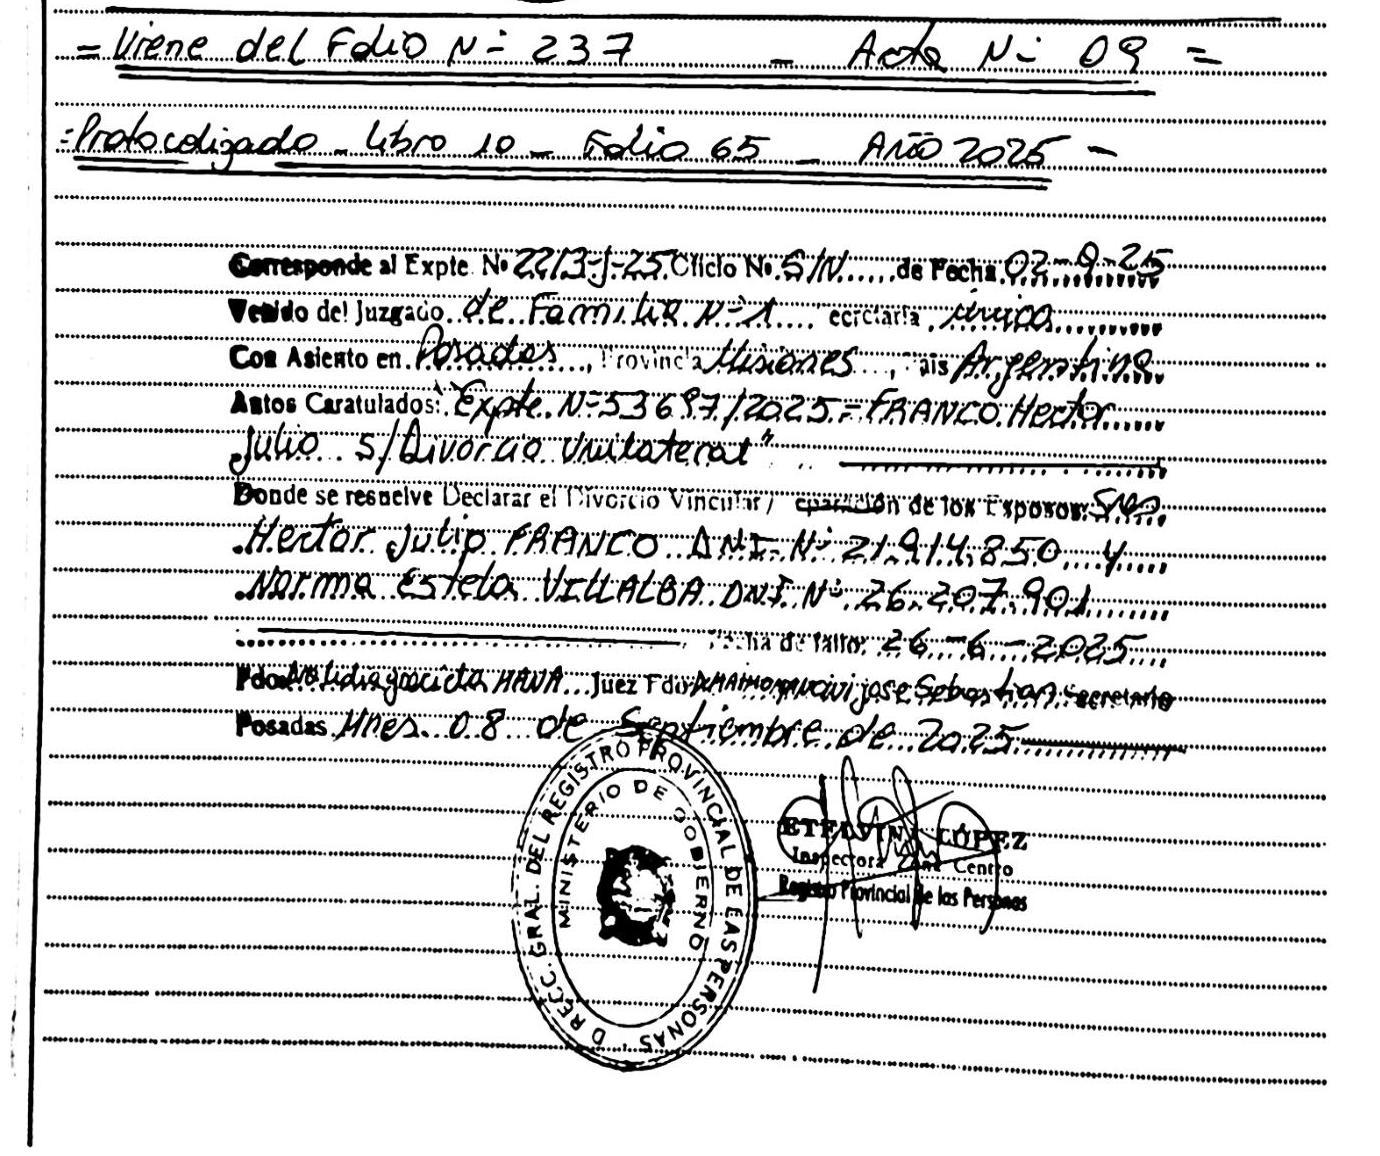 = Viene del Folio Nº 237 - Acta Nº 09 =
=Protocolizado - Libro 10 - Folio 65 - AÑO 2025 -
Corresponde al Expte. Nº 2213-J-25 Oficio Nº S/N de Fecha 02-9-25
Venido del Juzgado de Familia Nº 1 ecretaría única
Con Asiento en Posadas, Provincia Misiones, País Argentina
Autos Caratulados: "Expte. Nº 53697/2025 = FRANCO Hector
Julio S/Divorcio Unilateral"
Donde se resuelve Declarar el Divorcio Vincular/ eparación de los Esposos: Sres
Hector Julio FRANCO DNI Nº 21.914.850 y
Norma Estela VILLALBA DNI Nº 26.207.901
Fecha de fallo: 26-6-2025
Fdo. Juez Fdo jose Sebastian Secretario
Posadas, Mnes. 08 de Septiembre de 2025
DIRECC. GRAL. DEL REGISTRO PROVINCIAL DE LAS PERSONAS
MINISTERIO DE GOBIERNO
ETELVINA LÓPEZ
Inspectora Zona Centro
Registro Provincial de las Personas